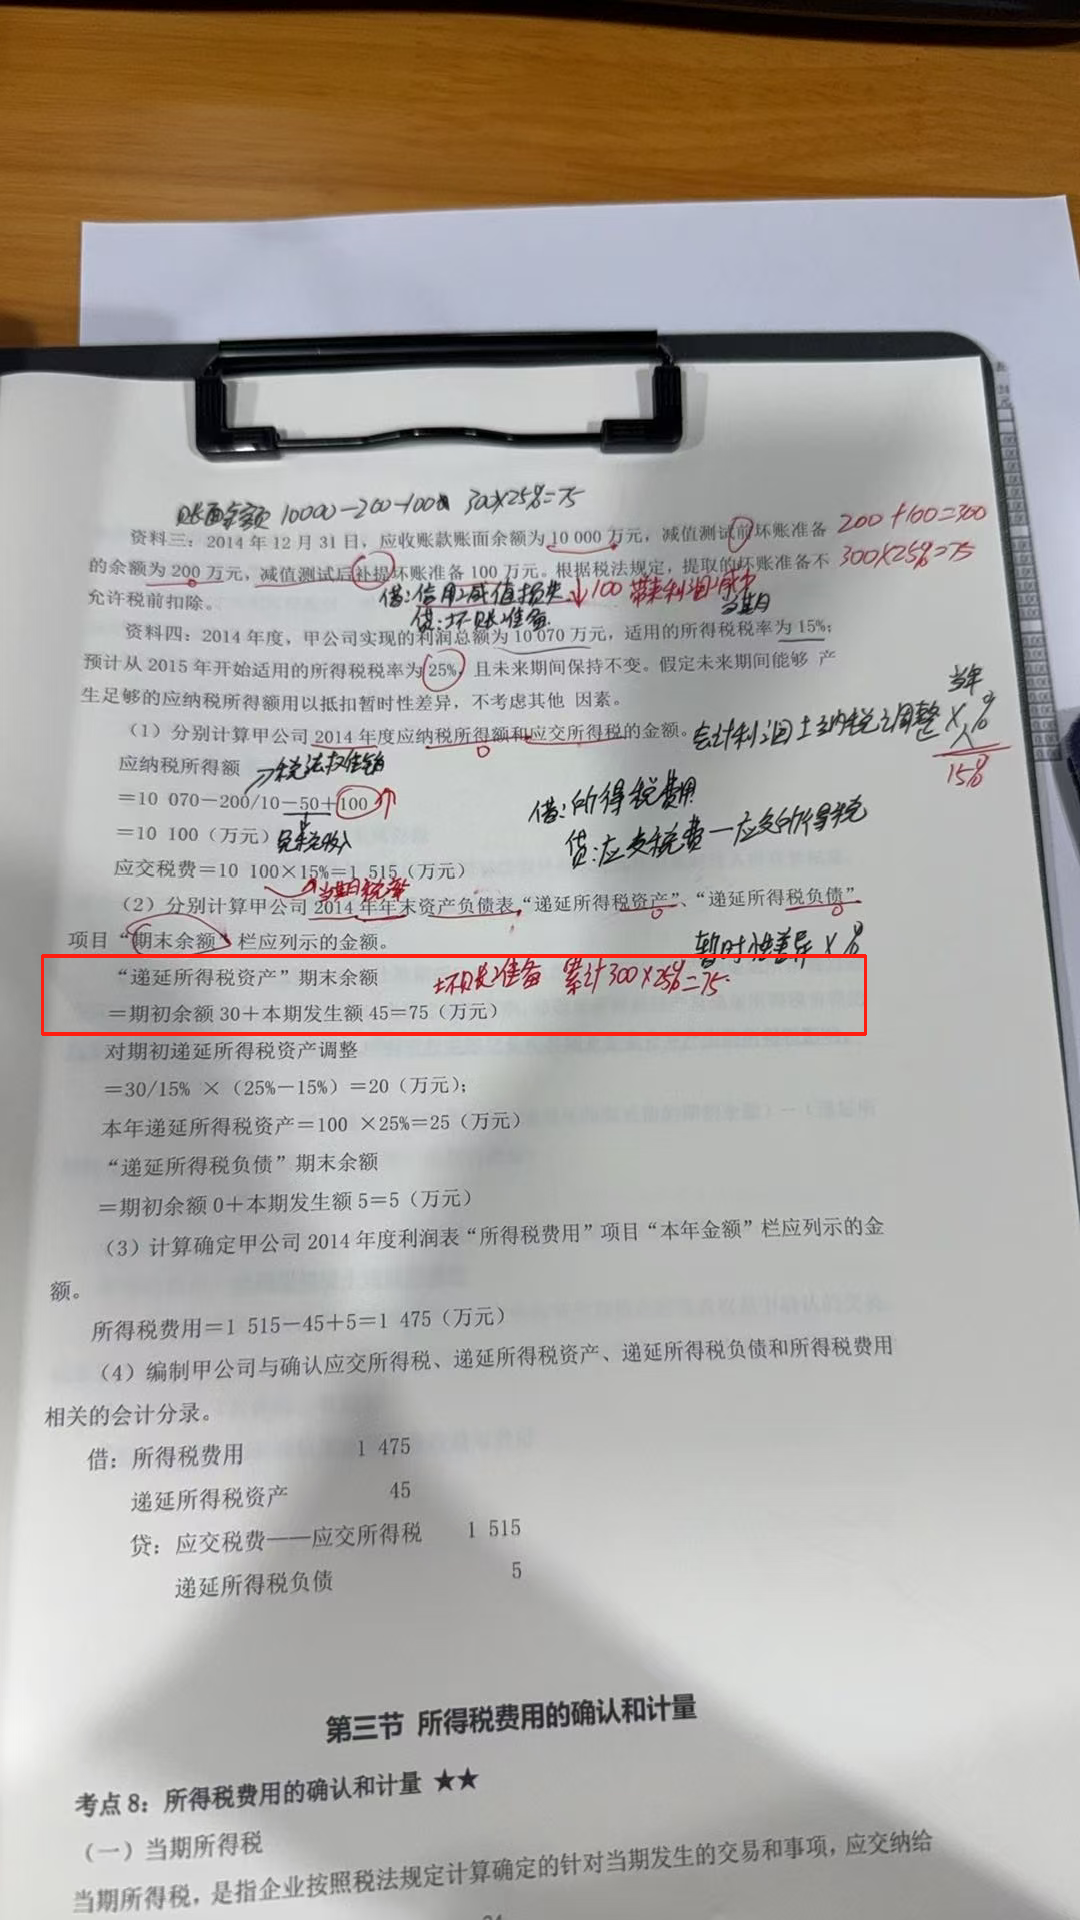 账面余额 10000-200-100 300×25%=75
资料三：2014 年 12 月 31 日，应收账款账面余额为 10 000 万元，减值测试前坏账准备
200+100=300
的余额为 200 万元，减值测试后补提坏账准备 100 万元。根据税法规定，提取的坏账准备不
300×25%=75
允许税前扣除。
借：信用减值损失 ↓100 带来利润减少
贷：坏账准备 当期
资料四：2014 年度，甲公司实现的利润总额为 10 070 万元，适用的所得税税率为 15%；
预计从 2015 年开始适用的所得税税率为 25%，且未来期间保持不变。假定未来期间能够 产
生足够的应纳税所得额用以抵扣暂时性差异，不考虑其他 因素。
（1）分别计算甲公司 2014 年度应纳税所得额和应交所得税的金额。
会计利润±纳税调整 × 当年%
15%
应纳税所得额
税法权住销
＝10 070－200/10－50＋100
＝10 100（万元）
免税收入
借：所得税费用
贷：应交税费—应交所得税
应交税费＝10 100×15%＝1 515（万元）
当期税率
（2）分别计算甲公司 2014 年年末资产负债表“递延所得税资产”、“递延所得税负债”
项目“期末余额”栏应列示的金额。
暂时性差异×%
“递延所得税资产”期末余额
坏账准备 累计300×25%=75
＝期初余额 30＋本期发生额 45＝75（万元）
对期初递延所得税资产调整
＝30/15% ×（25%－15%）＝20（万元）；
本年递延所得税资产＝100 ×25%＝25（万元）
“递延所得税负债”期末余额
＝期初余额 0＋本期发生额 5＝5（万元）
（3）计算确定甲公司 2014 年度利润表“所得税费用”项目“本年金额”栏应列示的金
额。
所得税费用＝1 515－45＋5＝1 475（万元）
（4）编制甲公司与确认应交所得税、递延所得税资产、递延所得税负债和所得税费用
相关的会计分录。
借：所得税费用 1 475
递延所得税资产 45
贷：应交税费——应交所得税 1 515
递延所得税负债 5
第三节 所得税费用的确认和计量
考点 8：所得税费用的确认和计量 ★★
（一）当期所得税
当期所得税，是指企业按照税法规定计算确定的针对当期发生的交易和事项，应交纳给